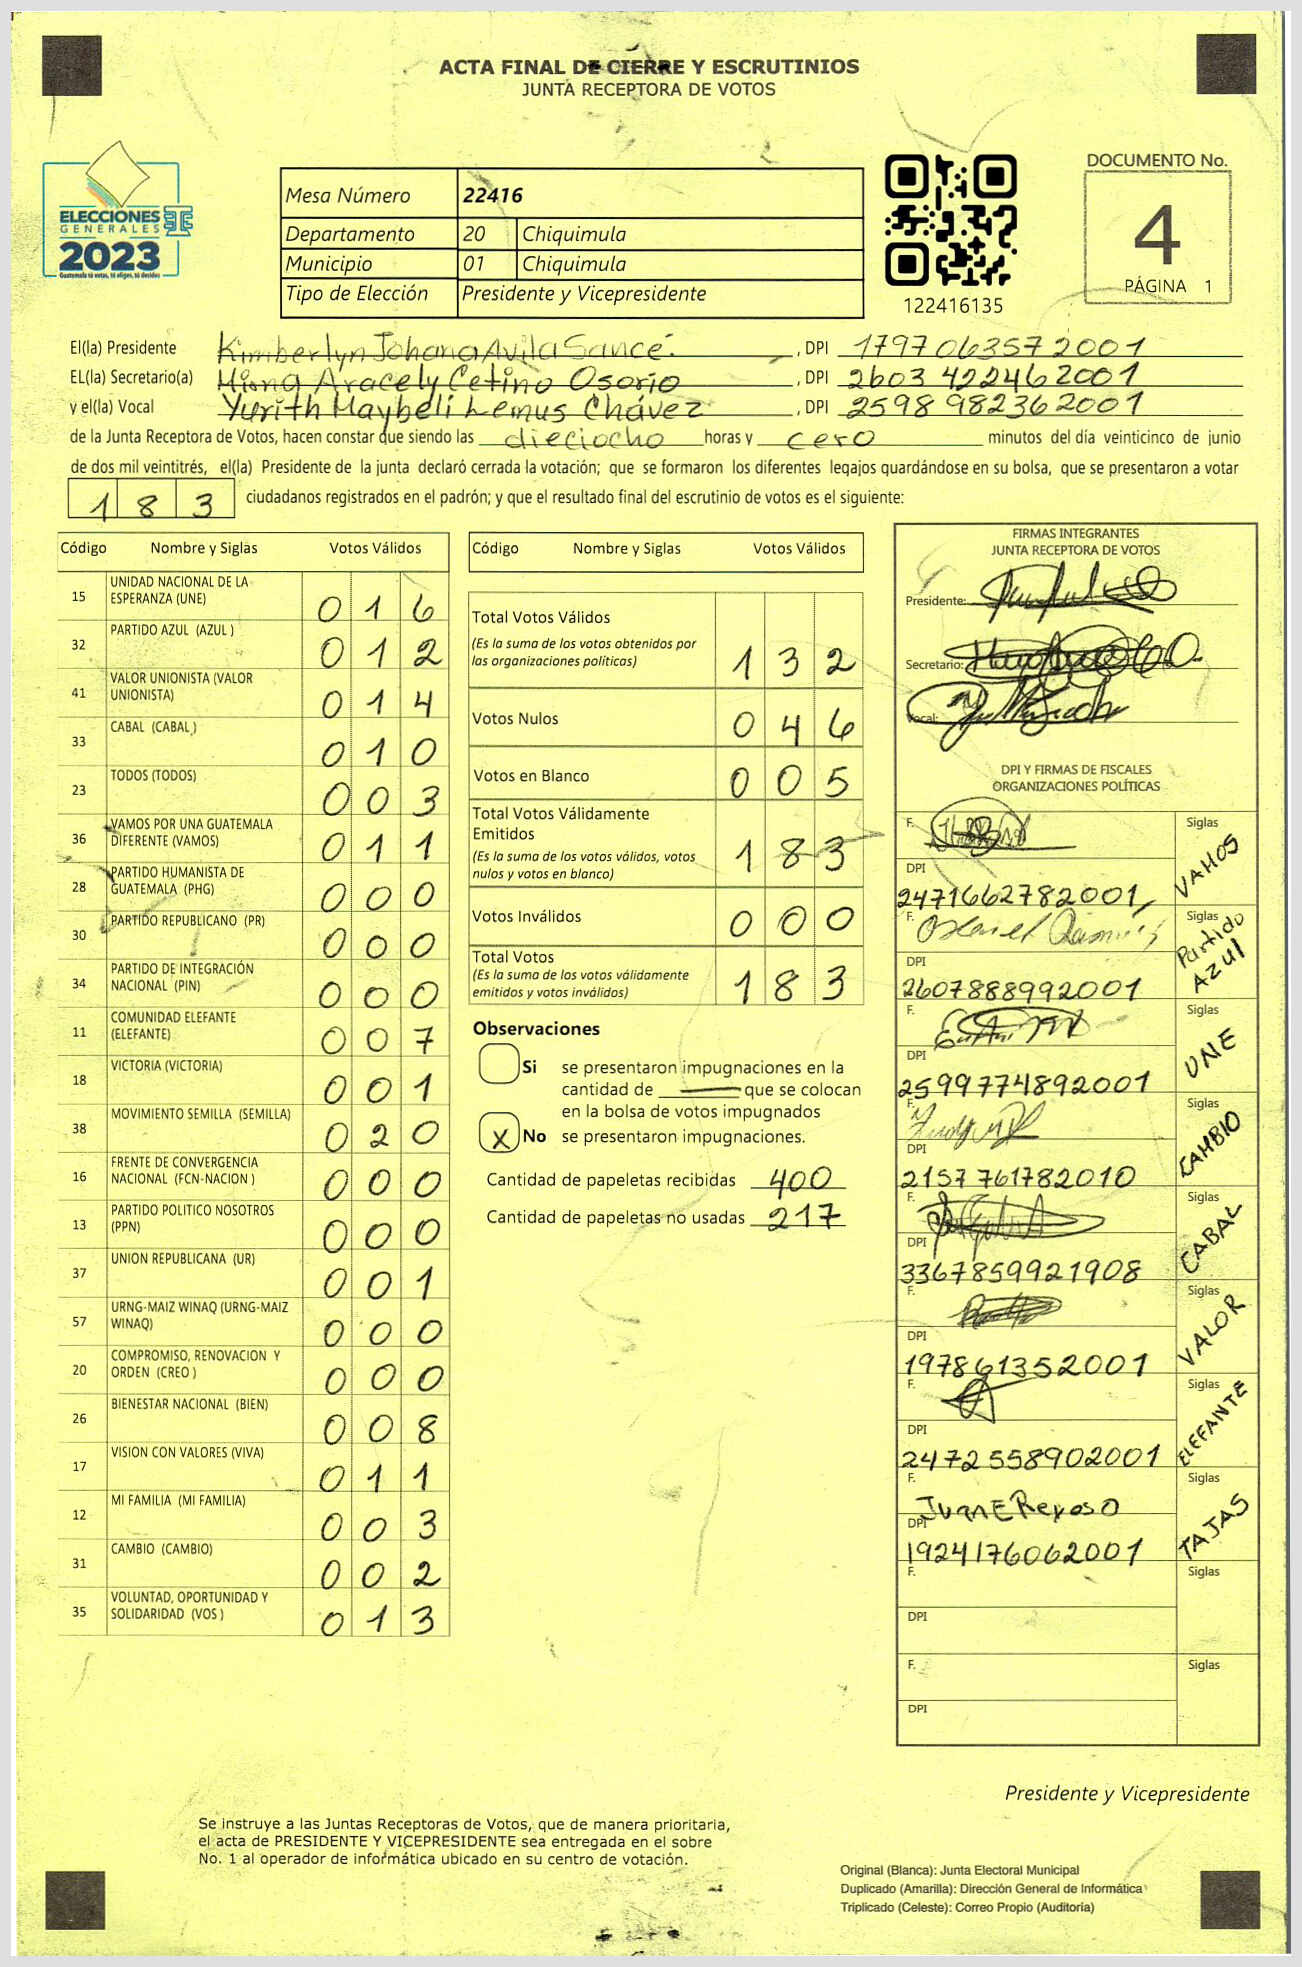 ACTA FINAL DE CIERRE Y ESCRUTINIOS
JUNTA RECEPTORA DE VOTOS
ELECCIONES
GENERALES
2023
Guatemala tú votas, tú eliges, tú decides
Mesa Número 22416
Departamento 20 Chiquimula
Municipio 01 Chiquimula
Tipo de Elección Presidente y Vicepresidente
122416135
DOCUMENTO No.
4
PÁGINA 1
El(la) Presidente Kimberlyn Johana Avila Sancé. , DPI 1797063572001
EL(la) Secretario(a) Aracely Cetino Osorio , DPI 2603 422462001
y el(la) Vocal Yurith Maybeli Lemus Chávez , DPI 2598 982362001
de la Junta Receptora de Votos, hacen constar que siendo las dieciocho horas y cero minutos del día veinticinco de junio
de dos mil veintitrés, el(la) Presidente de la junta declaró cerrada la votación; que se formaron los diferentes legajos quardándose en su bolsa, que se presentaron a votar
183 ciudadanos registrados en el padrón; y que el resultado final del escrutinio de votos es el siguiente:
Código Nombre y Siglas Votos Válidos
15 UNIDAD NACIONAL DE LA ESPERANZA (UNE) 016
32 PARTIDO AZUL (AZUL ) 012
41 VALOR UNIONISTA (VALOR UNIONISTA) 014
33 CABAL (CABAL ) 010
23 TODOS (TODOS) 003
36 VAMOS POR UNA GUATEMALA DIFERENTE (VAMOS) 011
28 PARTIDO HUMANISTA DE GUATEMALA (PHG) 000
30 PARTIDO REPUBLICANO (PR) 000
34 PARTIDO DE INTEGRACIÓN NACIONAL (PIN) 000
11 COMUNIDAD ELEFANTE (ELEFANTE) 007
18 VICTORIA (VICTORIA) 001
38 MOVIMIENTO SEMILLA (SEMILLA) 020
16 FRENTE DE CONVERGENCIA NACIONAL (FCN-NACION ) 000
13 PARTIDO POLITICO NOSOTROS (PPN) 000
37 UNION REPUBLICANA (UR) 001
57 URNG-MAIZ WINAQ (URNG-MAIZ WINAQ) 000
20 COMPROMISO, RENOVACION Y ORDEN (CREO ) 000
26 BIENESTAR NACIONAL (BIEN) 008
17 VISION CON VALORES (VIVA) 011
12 MI FAMILIA (MI FAMILIA) 003
31 CAMBIO (CAMBIO) 002
35 VOLUNTAD, OPORTUNIDAD Y SOLIDARIDAD (VOS ) 013
Código Nombre y Siglas Votos Válidos
Total Votos Válidos
(Es la suma de los votos obtenidos por
las organizaciones políticas) 132
Votos Nulos 046
Votos en Blanco 005
Total Votos Válidamente
Emitidos
(Es la suma de los votos válidos, votos
nulos y votos en blanco) 183
Votos Inválidos 000
Total Votos
(Es la suma de los votos válidamente
emitidos y votos inválidos) 183
Observaciones
Si se presentaron impugnaciones en la
cantidad de que se colocan
en la bolsa de votos impugnados
X No se presentaron impugnaciones.
Cantidad de papeletas recibidas 400
Cantidad de papeletas no usadas 217
FIRMAS INTEGRANTES
JUNTA RECEPTORA DE VOTOS
Presidente:
Secretario:
Vocal:
DPI Y FIRMAS DE FISCALES
ORGANIZACIONES POLÍTICAS
F. Siglas VAMOS
DPI 2471662782001
F. Siglas Partido AZUL
DPI 2607888992001
F. Siglas UNE
DPI 2599774892001
F. Siglas CAMBIO
DPI 2157 761782010
F. Siglas CABAL
DPI 3367859921908
F. Siglas VALOR
DPI 197861352001
F. Siglas ELEFANTE
DPI 2472558902001
F. Juan E Reynoso Siglas TAJAS
DPI 1924176062001
F. Siglas
DPI
F. Siglas
DPI
Presidente y Vicepresidente
Se instruye a las Juntas Receptoras de Votos, que de manera prioritaria,
el acta de PRESIDENTE Y VICEPRESIDENTE sea entregada en el sobre
No. 1 al operador de informática ubicado en su centro de votación.
Original (Blanca): Junta Electoral Municipal
Duplicado (Amarilla): Dirección General de Informática
Triplicado (Celeste): Correo Propio (Auditoría)